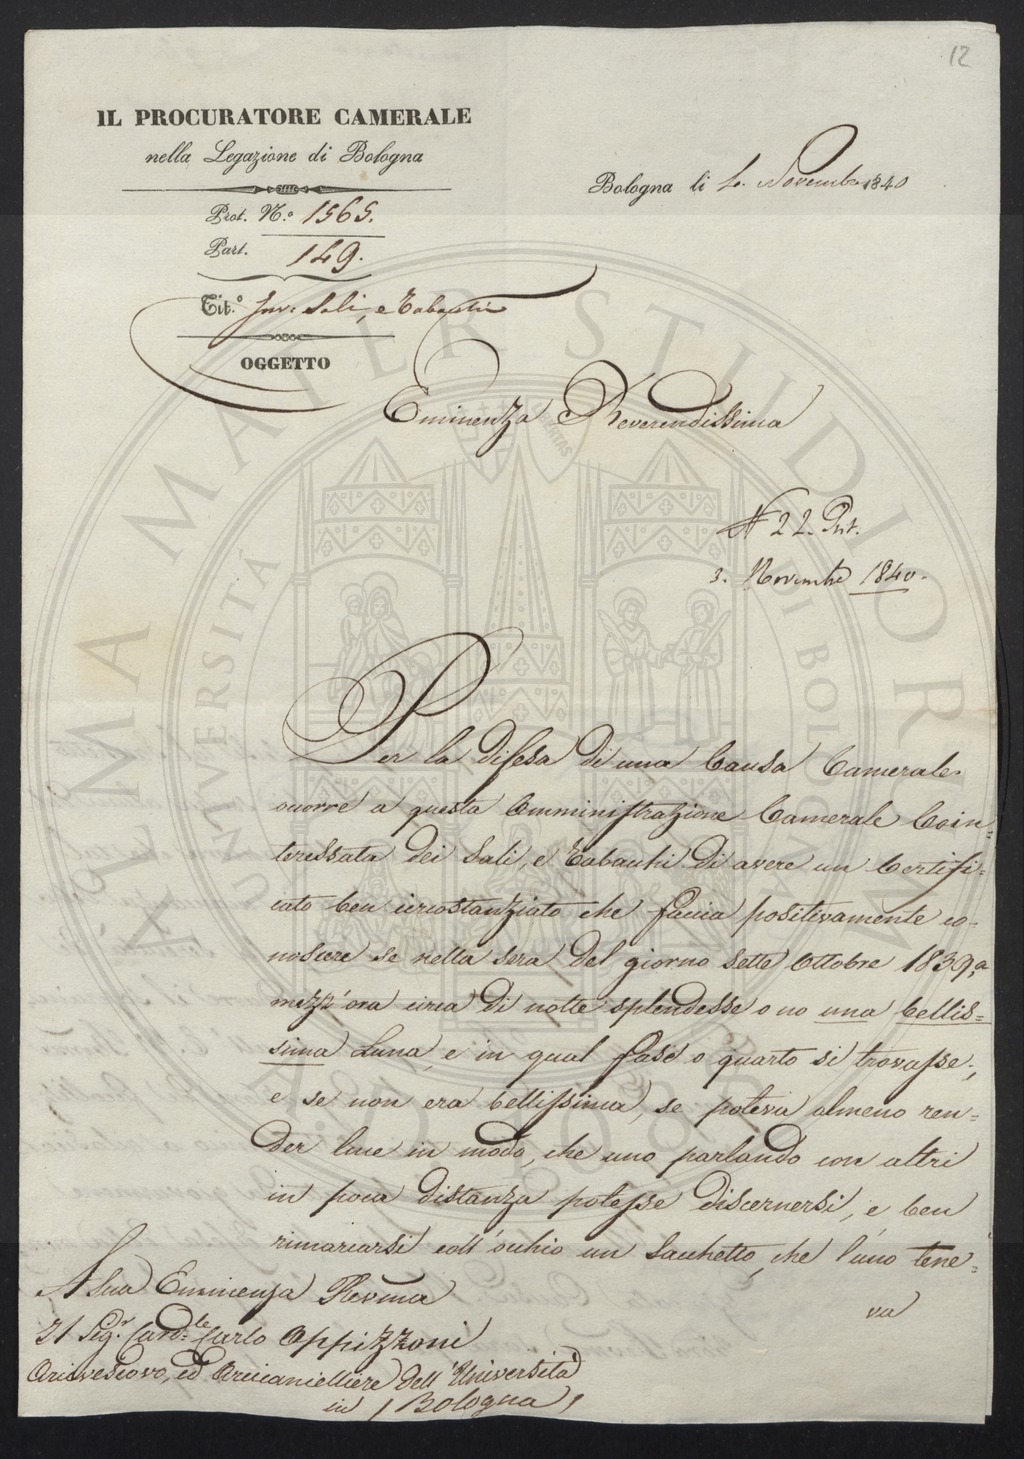 12
IL PROCURATORE CAMERALE
nella Legazione di Bologna
Bologna li 2. Novembre 1840
Prot. N.º 1565.
Part. 149.
Tit.º Inv. Sali, e Tabacchi
OGGETTO
Eminenza Reverendissima
N 22. Prot.
3. Novembre 1840.
Per la difesa di una Causa Camerale
occorre a questa Amministrazione Camerale Coin=
teressata dei Sali, e Tabacchi di avere un Certifi=
cato ben circostanziato che faccia positivamente co=
noscere se nella sera del giorno sette Ottobre 1839, a
mezz'ora circa di notte splendesse o no una bellis=
sima Luna, e in qual fase o quarto si trovasse;
e se non era bellissima, se poteva almeno ren=
der luce in modo, che uno parlando con altri
in poca distanza potesse discernersi, e ben
rimarcarsi coll'occhio un Sacchetto, che l'uno tene=
va
A Sua Eminenza Revma
Il Sig.r Card.le Carlo Oppizzoni
Arcivescovo, ed Arcicancelliere dell'Università
in / Bologna /
ALMA MATER STUDIORUM
UNIVERSITÀ DI BOLOGNA
A.D. 1088